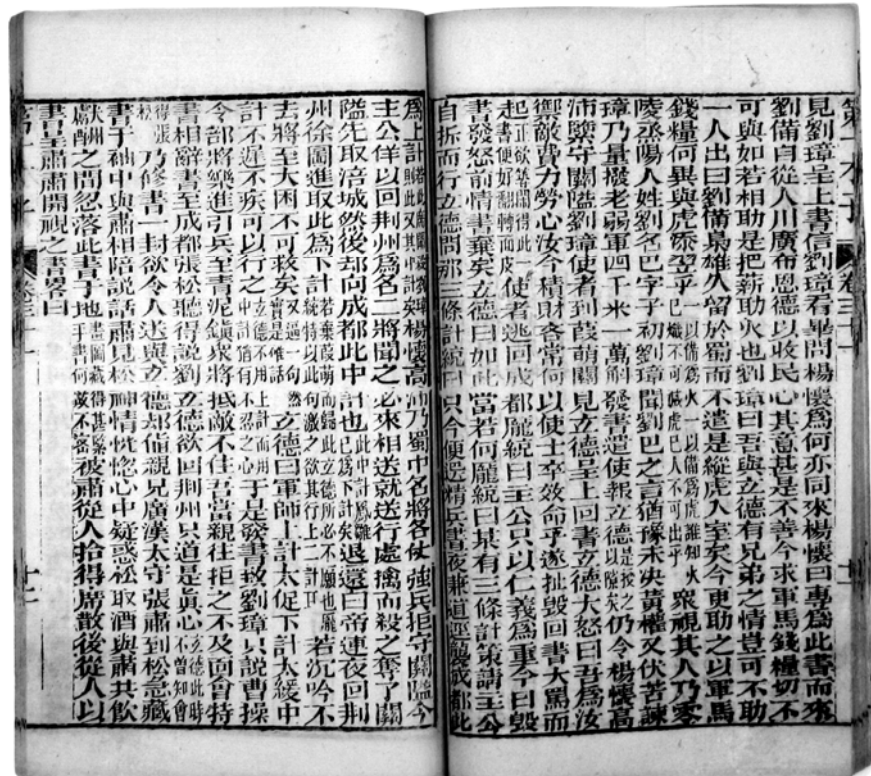 第一才子
卷三十一
見劉璋呈上書信劉璋看畢問楊懷爲何亦同來楊懷曰專爲此書而來
劉備自從入川廣布恩德以收民心其意甚是不善今求軍馬錢糧切不
可與如若相助是把薪助火也劉璋曰吾與立德有兄弟之情豈可不助
一人出曰劉備梟雄久留於蜀而不遣是縱虎入室矣今更助之以軍馬
錢糧何異與虎添翌乎一以備爲火一以備爲虎雖知火已熾不可滅虎已入不可出乎衆視其人乃零
陵烝陽人姓劉名巴字子初劉璋聞劉巴之言猶豫未決黃權又伏苦諫
璋乃量撥老弱軍四千米一萬斛發書遣使報立德仍令楊懷高
沛緊守關隘劉璋使者到葭萌關見立德呈上回書立德大怒曰吾爲汝
禦敵費力勞心汝今積財吝賞何以使士卒效命乎遂扯毀回書大罵而
起正欲等得此一書便好翻轉面皮使者逃回成都龐統曰主公只以仁義爲重今日毀
書發怒前情盡棄矣立德曰如此當若何龐統曰某有三條計策請主公
自擇而行立德問那三條計統曰只今便選精兵晝夜兼道徑襲成都此
爲上計楊懷高沛乃蜀中名將各仗強兵拒守關隘今
主公佯以回荊州爲名二將聞之必來相送就送行處擒而殺之奪了關
隘先取涪城然後却向成都此中計也退還白帝連夜回荊
州徐圖進取此爲下計若棄葭萌而歸此立德所必不願也龐統特以此句激之欲其行上二計耳若沉吟不
去將至大困不可救矣又逼一句然實是唯話立德曰軍師上計太促下計太緩中
計不遲不疾可以行之立德不用上計而用中計猶有不忍之心于是發書致劉璋只說曹操
令部將樂進引兵至青泥鎮衆將抵敵不住吾當親往拒之不及面會特
書相辭書至成都張松聽得說劉立德欲回荊州只道是眞心立德此時不曾知會得張松
乃修書一封欲令人送與立德却値親兄廣漢太守張肅到松急藏
書于袖中與肅相陪說話肅見松神情恍惚心中疑惑松取酒與肅共飲
獻酬之間忽落此書于地畫圖藏得甚緊于書何故不密被肅從人拾得席散後從人以
書呈肅肅開視之書畧曰